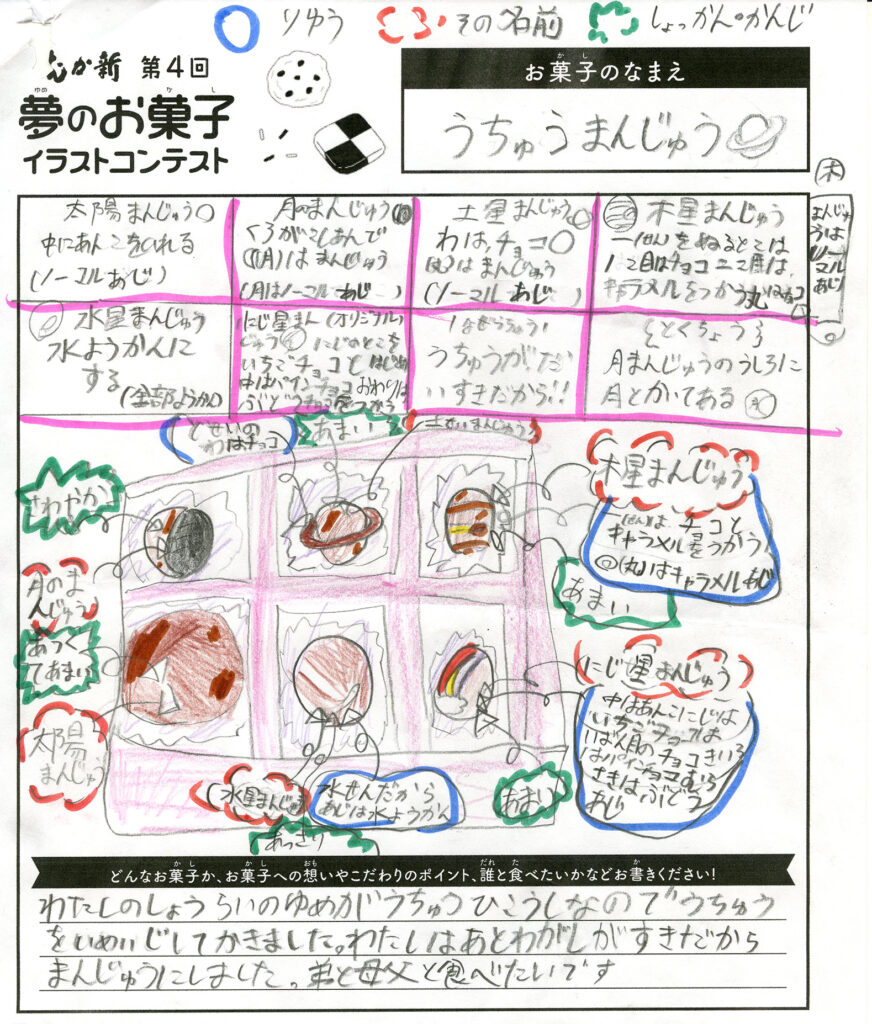 りゆう
その名前
しょっかん・かんじ
第4回
夢のお菓子
イラストコンテスト
お菓子のなまえ
うちゅうまんじゅう
木
太陽まんじゅう
中にあんこをいれる
(ノーマルあじ)
月のまんじゅう
くろがこしあんで
(月)はまんじゅう
(月はノーマルあじ)
土星まんじゅう
わは、チョコ
(丸)はまんじゅう
(ノーマルあじ)
木星まんじゅう
一(せん)をぬるとこは
キャラメルをつかう
まんじゅ
うは
ノー
マル
あじ
水星まんじゅう
水ようかんに
する
(全部ようかん)
にじ星まん(オリジナル)
じゅう にじのとこを
いちごチョコとはじめ
中はパインチョコおわりは
なぜうちゅう!
うちゅうがだい
いすきだから!!
とくちょう
月まんじゅうのうしろに
月とかいてある
どせいの
わはチョコ
あまい
土せいまんじゅう
さわやか
月のま
んじゅう
あつく
てあまい
太陽
まんじゅう
木星まんじゅう
(せん)は チョコと
キャラメルをつかう
(丸)はキャラメルあじ
あまい
にじ星まんじゅう
中はあんこにじは
いちごチョコは
いばん月のチョコきいろ
はパインチョコむら
さきはぶどう
あじ
水星まんじゅう
水せんだから
あじは水ようかん
あまい
あっさり
どんなお菓子か、お菓子への想いやこだわりのポイント、誰と食べたいかなどお書きください!
わたしのしょうらいのゆめがうちゅうひこうしなので"うちゅう
をいめいじしてかきました。わたしはあとわがしがすきだから
まんじゅうにしました。弟と母父と食べたいです